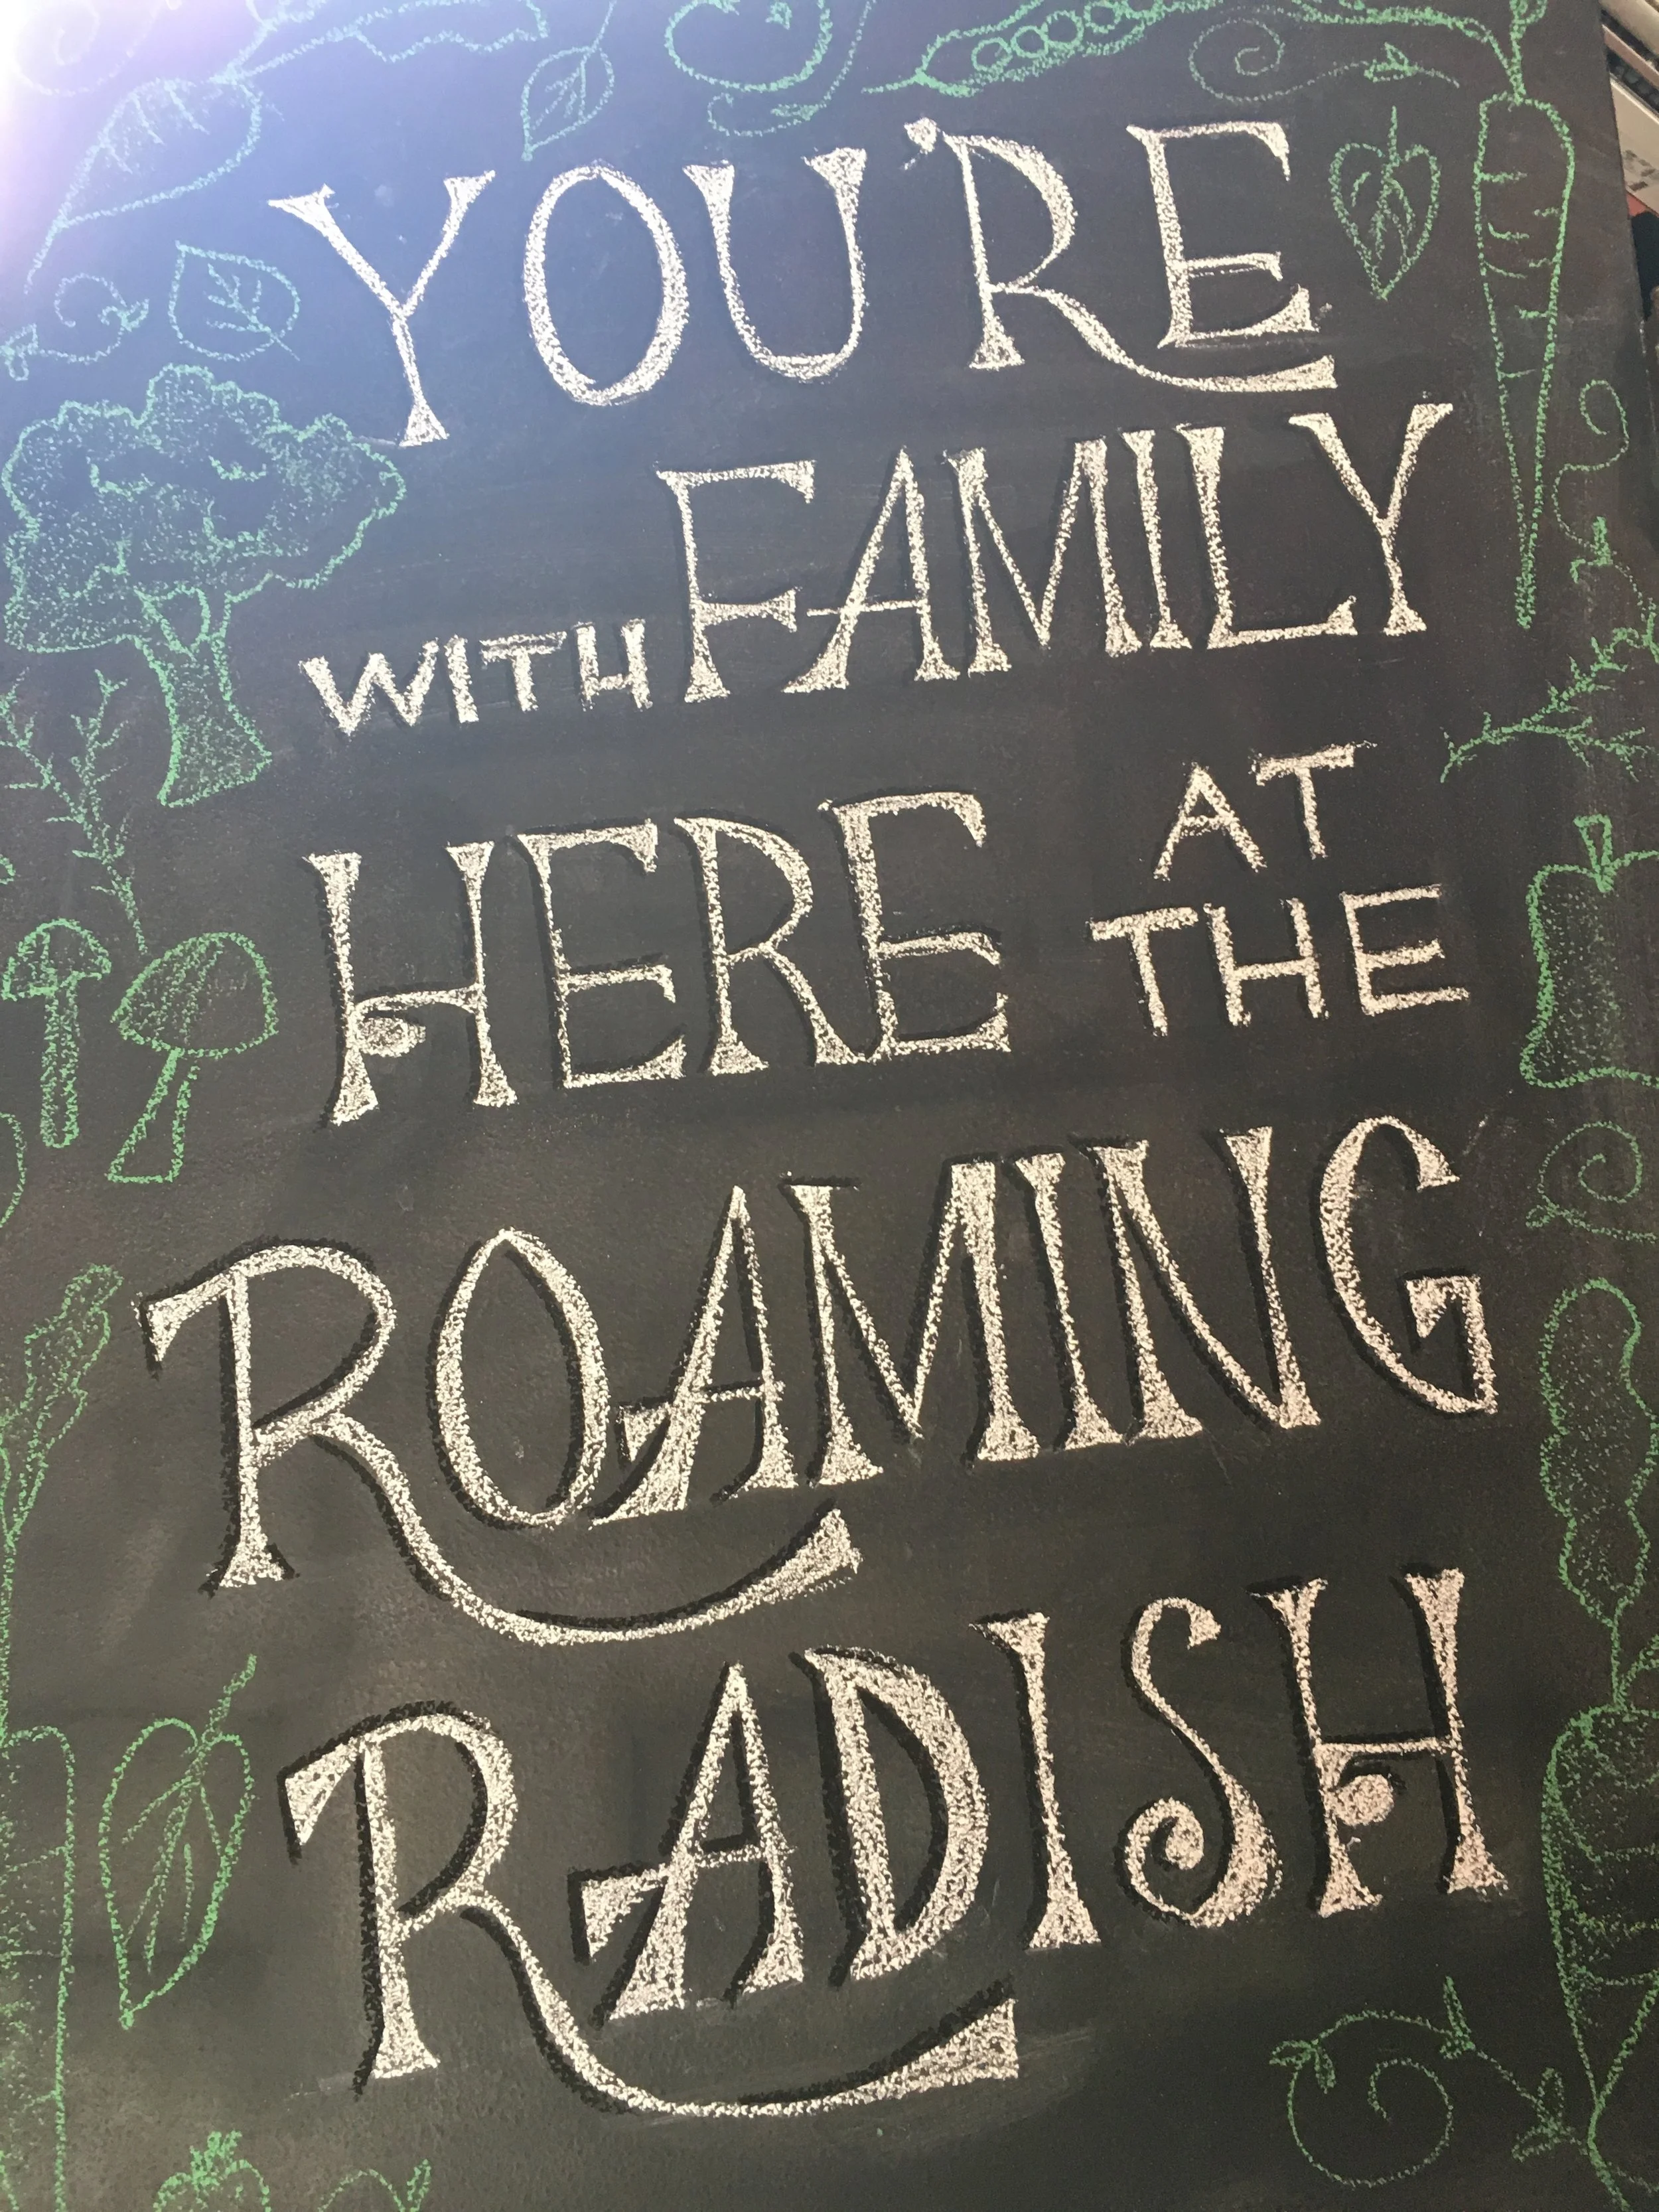 YOU'RE
WITH FAMILY
HERE AT THE
ROAMING
RADISH